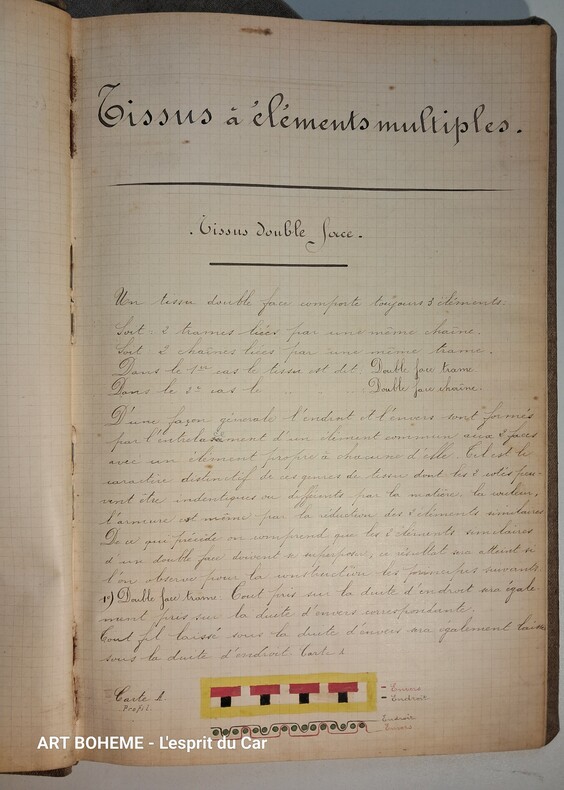 Tissus à éléments multiples.
. Tissus double face .
Un tissu double face comporte toujours 3 éléments.
Soit 2 trames liées par une même chaîne.
Soit 2 chaînes liées par une même trame.
Dans le 1er cas le tissu est dit Double face trame
Dans le 2e cas le .. .. Double face chaîne.
D'une façon générale l'endroit et l'envers sont formés
par l'entrelacément d'un élément commun aux 2 faces
avec un élément propre à chacune d'elle. Tel est le
caractère distinctif de ces genres de tissu dont les 2 cotés peu-
vent être indentiques ou différents par la matière, la couleur,
l'armure et même par la réduction des 2 éléments similaires
De ce qui précède on comprend que les 2 éléments similaires
d'un double face doivent se superposer, ce résultat sera atteint si
l'on observe pour la construction les principes suivants
1e) Double face trame. Tout pris sur la duite d'endroit sera égale-
ment pris sur la duite d'envers correspondante.
Tout fil laissé sous la duite d'envers sera également laissé
sous la duite d'endroit. Carte 1
Carte 1
Profil.
- Envers
- Endroit
Endroit
Envers
ART BOHEME - L'esprit du Car